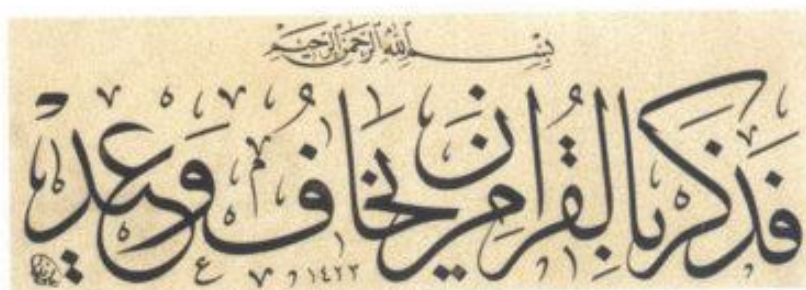 بِسْمِ اللَّهِ الرَّحْمَنِ الرَّحِيمِ
فَذَكِّرْ بِالْقُرْآنِ مَنْ يَخَافُ وَعِيدِ
١٤٢٣